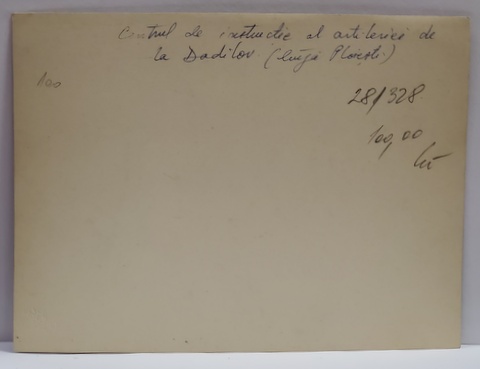 Centrul de instructie al artileriei de
la Dadilov (lîngă Ploiești)
28/328
100,00